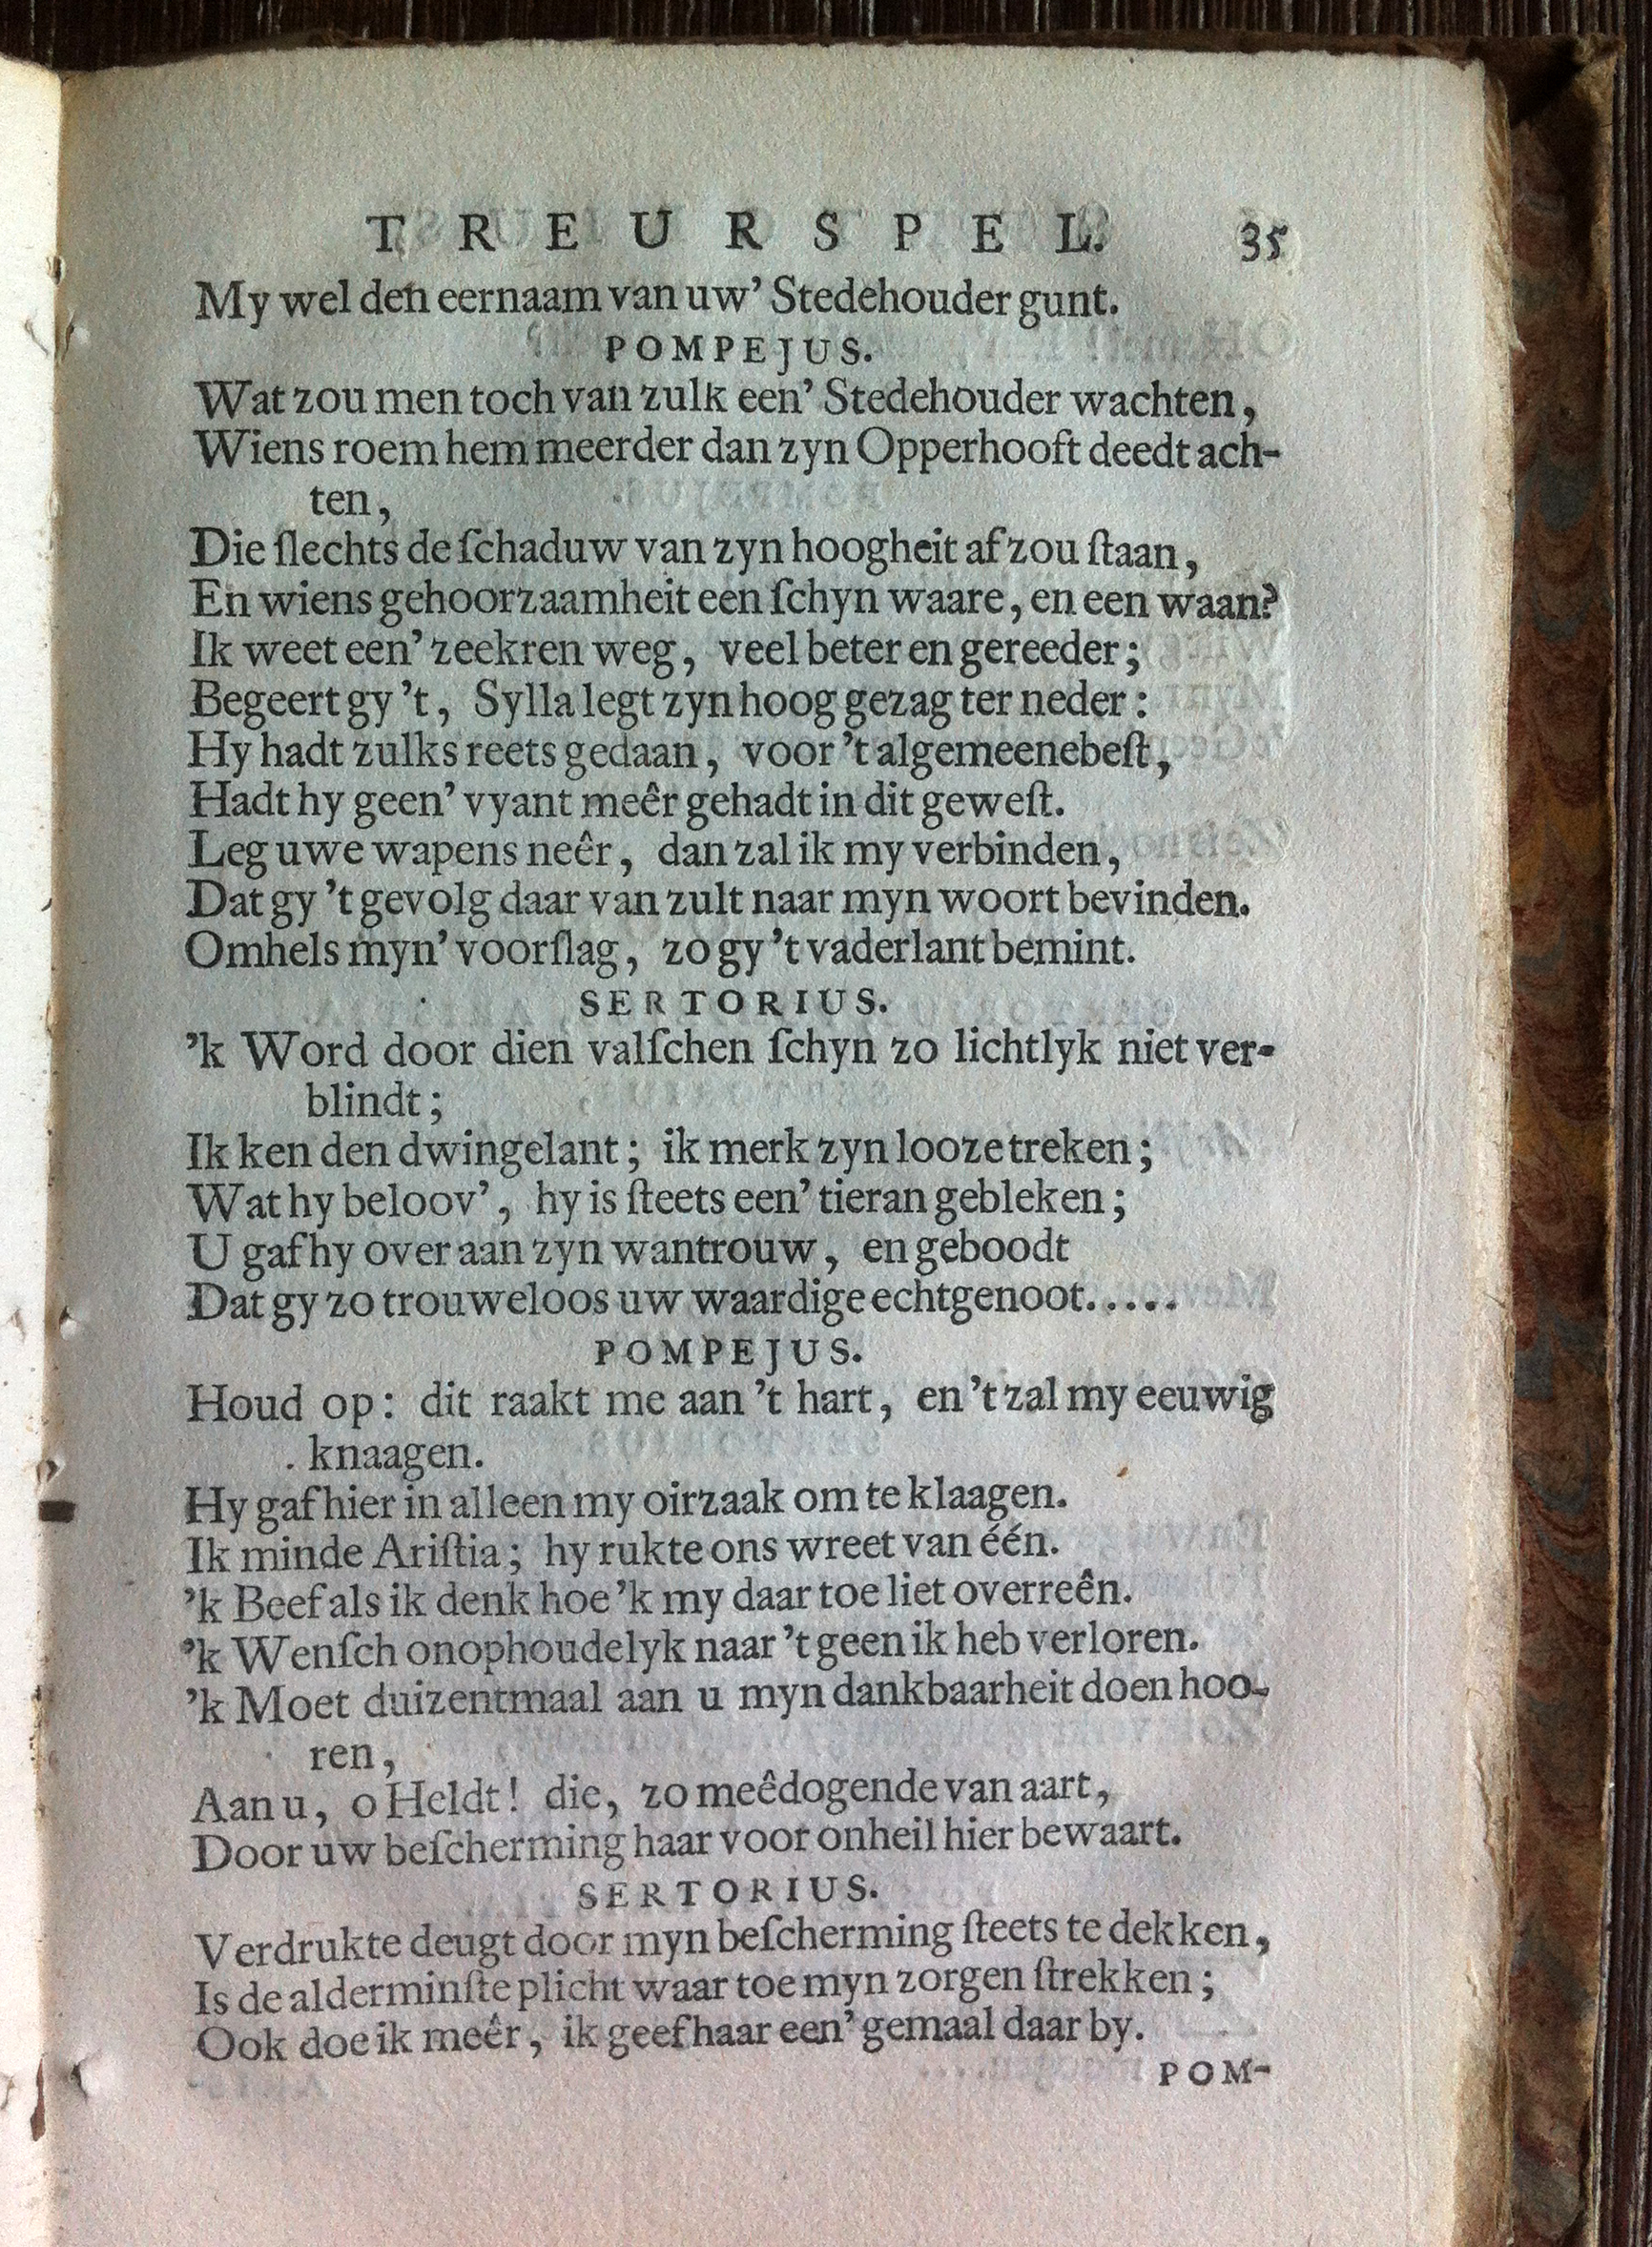 TREURSPEL. 35
My wel den eernaam van uw' Stedehouder gunt.
POMPEJUS.
Wat zou men toch van zulk een' Stedehouder wachten,
Wiens roem hem meerder dan zyn Opperhooft deedt ach-
ten,
Die ſlechts de ſchaduw van zyn hoogheit af zou ſtaan,
En wiens gehoorzaamheit een ſchyn waare, en een waan?
Ik weet een' zeekren weg, veel beter en gereeder;
Begeert gy 't, Sylla legt zyn hoog gezag ter neder:
Hy hadt zulks reets gedaan, voor 't algemeenebeſt,
Hadt hy geen' vyant meêr gehadt in dit geweſt.
Leg uwe wapens neêr, dan zal ik my verbinden,
Dat gy 't gevolg daar van zult naar myn woort bevinden.
Omhels myn' voorſlag, zo gy 't vaderlant bemint.
SERTORIUS.
'k Word door dien valſchen ſchyn zo lichtlyk niet ver-
blindt;
Ik ken den dwingelant; ik merk zyn looze treken;
Wat hy beloov', hy is ſteets een' tieran gebleken;
U gaf hy over aan zyn wantrouw, en geboodt
Dat gy zo trouweloos uw waardige echtgenoot.....
POMPEJUS.
Houd op: dit raakt me aan 't hart, en 't zal my eeuwig
knaagen.
Hy gaf hier in alleen my oirzaak om te klaagen.
Ik minde Ariſtia; hy rukte ons wreet van één.
'k Beef als ik denk hoe 'k my daar toe liet overreên.
'k Wenſch onophoudelyk naar 't geen ik heb verloren.
'k Moet duizentmaal aan u myn dankbaarheit doen hoo-
ren,
Aan u, o Heldt! die, zo meêdogende van aart,
Door uw beſcherming haar voor onheil hier bewaart.
SERTORIUS.
Verdrukte deugt door myn beſcherming ſteets te dekken,
Is de alderminſte plicht waar toe myn zorgen ſtrekken;
Ook doe ik meêr, ik geef haar een' gemaal daar by.
POM-